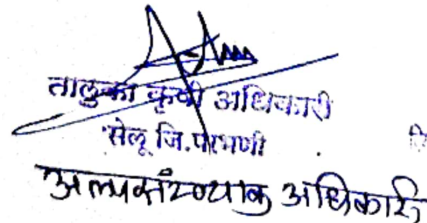 तालुका कृषी अधिकारी
सेलू जि.परभणी
अल्पसंख्याक अधिकारी